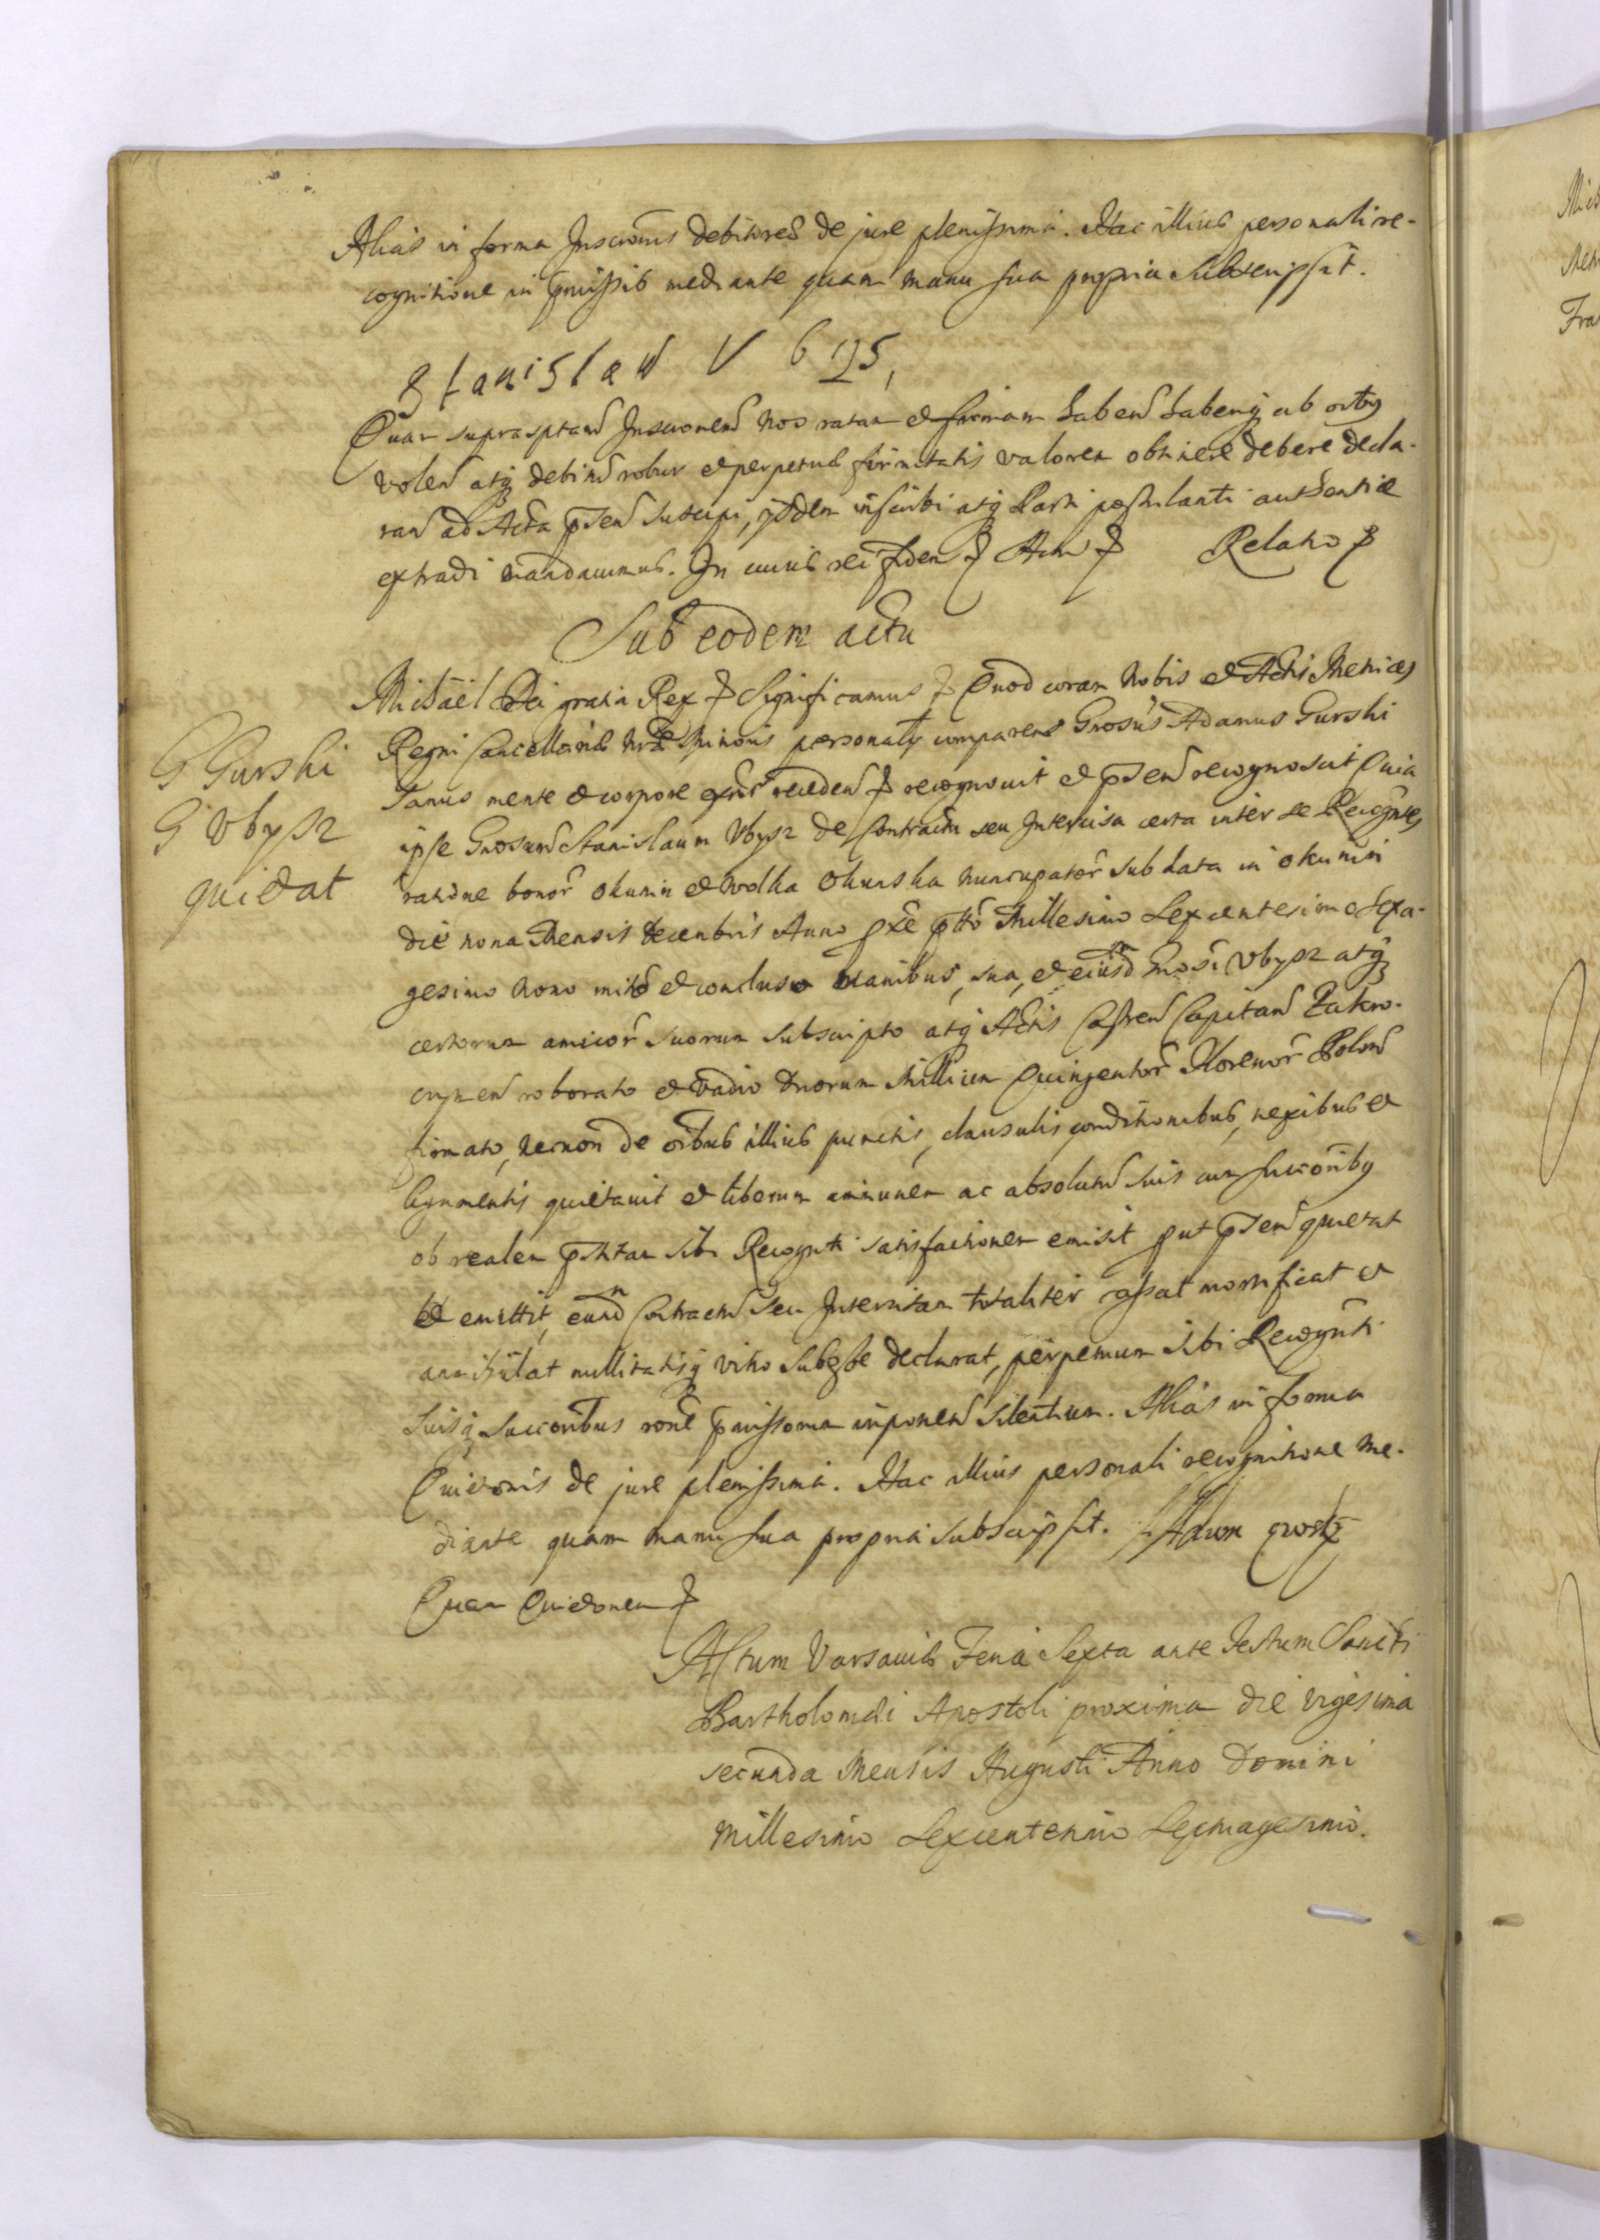 Alias in forma Inscronis debitoreŝ de jure plenissima. Hac illius personali re-
cognitione in pmissis mediante quam manu sua propria subscripsit.
Stanislaw Vbys,
Quam suprasptam Inscronem nos ratam et firmam haben habeng ab oibg
volen atq debitu robur et perpetuæ firmitatis valorem obtinere debere decla-
ran ad Acta psen suscipi, ysdem inscribi atq Parti postulanti authentice
extradi mandavimus. In cuius rei fidem & Actu & Relatio &
Sub eodem actu
Michael Dei gratia Rex & Significamus & Quod coram Nobis et Actis Metrices
Regni Cancellariæ Nræ Minoris personalr comparens Gnosus Adamus Gurski
sanus mente et corpore exñs receden & recognovit et psen recognoscit Quia
ipse Gnosum Stanislaum Vbysz de Contractu seu Intercisa certa inter se Recogntes
ratione bonor Okunin et Wolka Okunska nuncupator sub data in Okunin
die nona Mensis decembris Anno pxe ptto Millesimo Sexcentesimo Sexa-
gesimo Nono inito et concluso manibus sua, et eiusd Gnosi Vbysz atq
certorum amicor suorum subscripto atq Actis Castren Capitan Zakro-
cymen roborato et vadio duorum Millium Quingentor Florenor Polon
firmato, necnon de oibus illius punctis, clausulis conditionibus, nexibus et
ligamentis quietavit et liberum immunem ac absolutu suis cum succoribg
ob realem pstitam sibi Recognti satisfactionem emisit put psen quietat
et emittit, eund Contractu seu Intercisam totaliter cassat mortificat et
annihilat nullitatisq vitio subesse declarat, perpetuum sibi Recognti
suisq succoribus rone pmissorum imponen silentium. Alias in forma
Quietonis de jure plenissima. Hac illius personali recognitione me-
diante quam manu sua propria subscripsit. Adam Gursky
Quam Quietonem &
G Gurski
G Vbysz
quietat
Actum Varsaviæ Feria Sexta ante Festum Sancti
Bartholomæi Apostoli proxima die vigesima
secunda Mensis Augusti Anno Domini
Millesimo Sexcentesimo Septuagesimo.